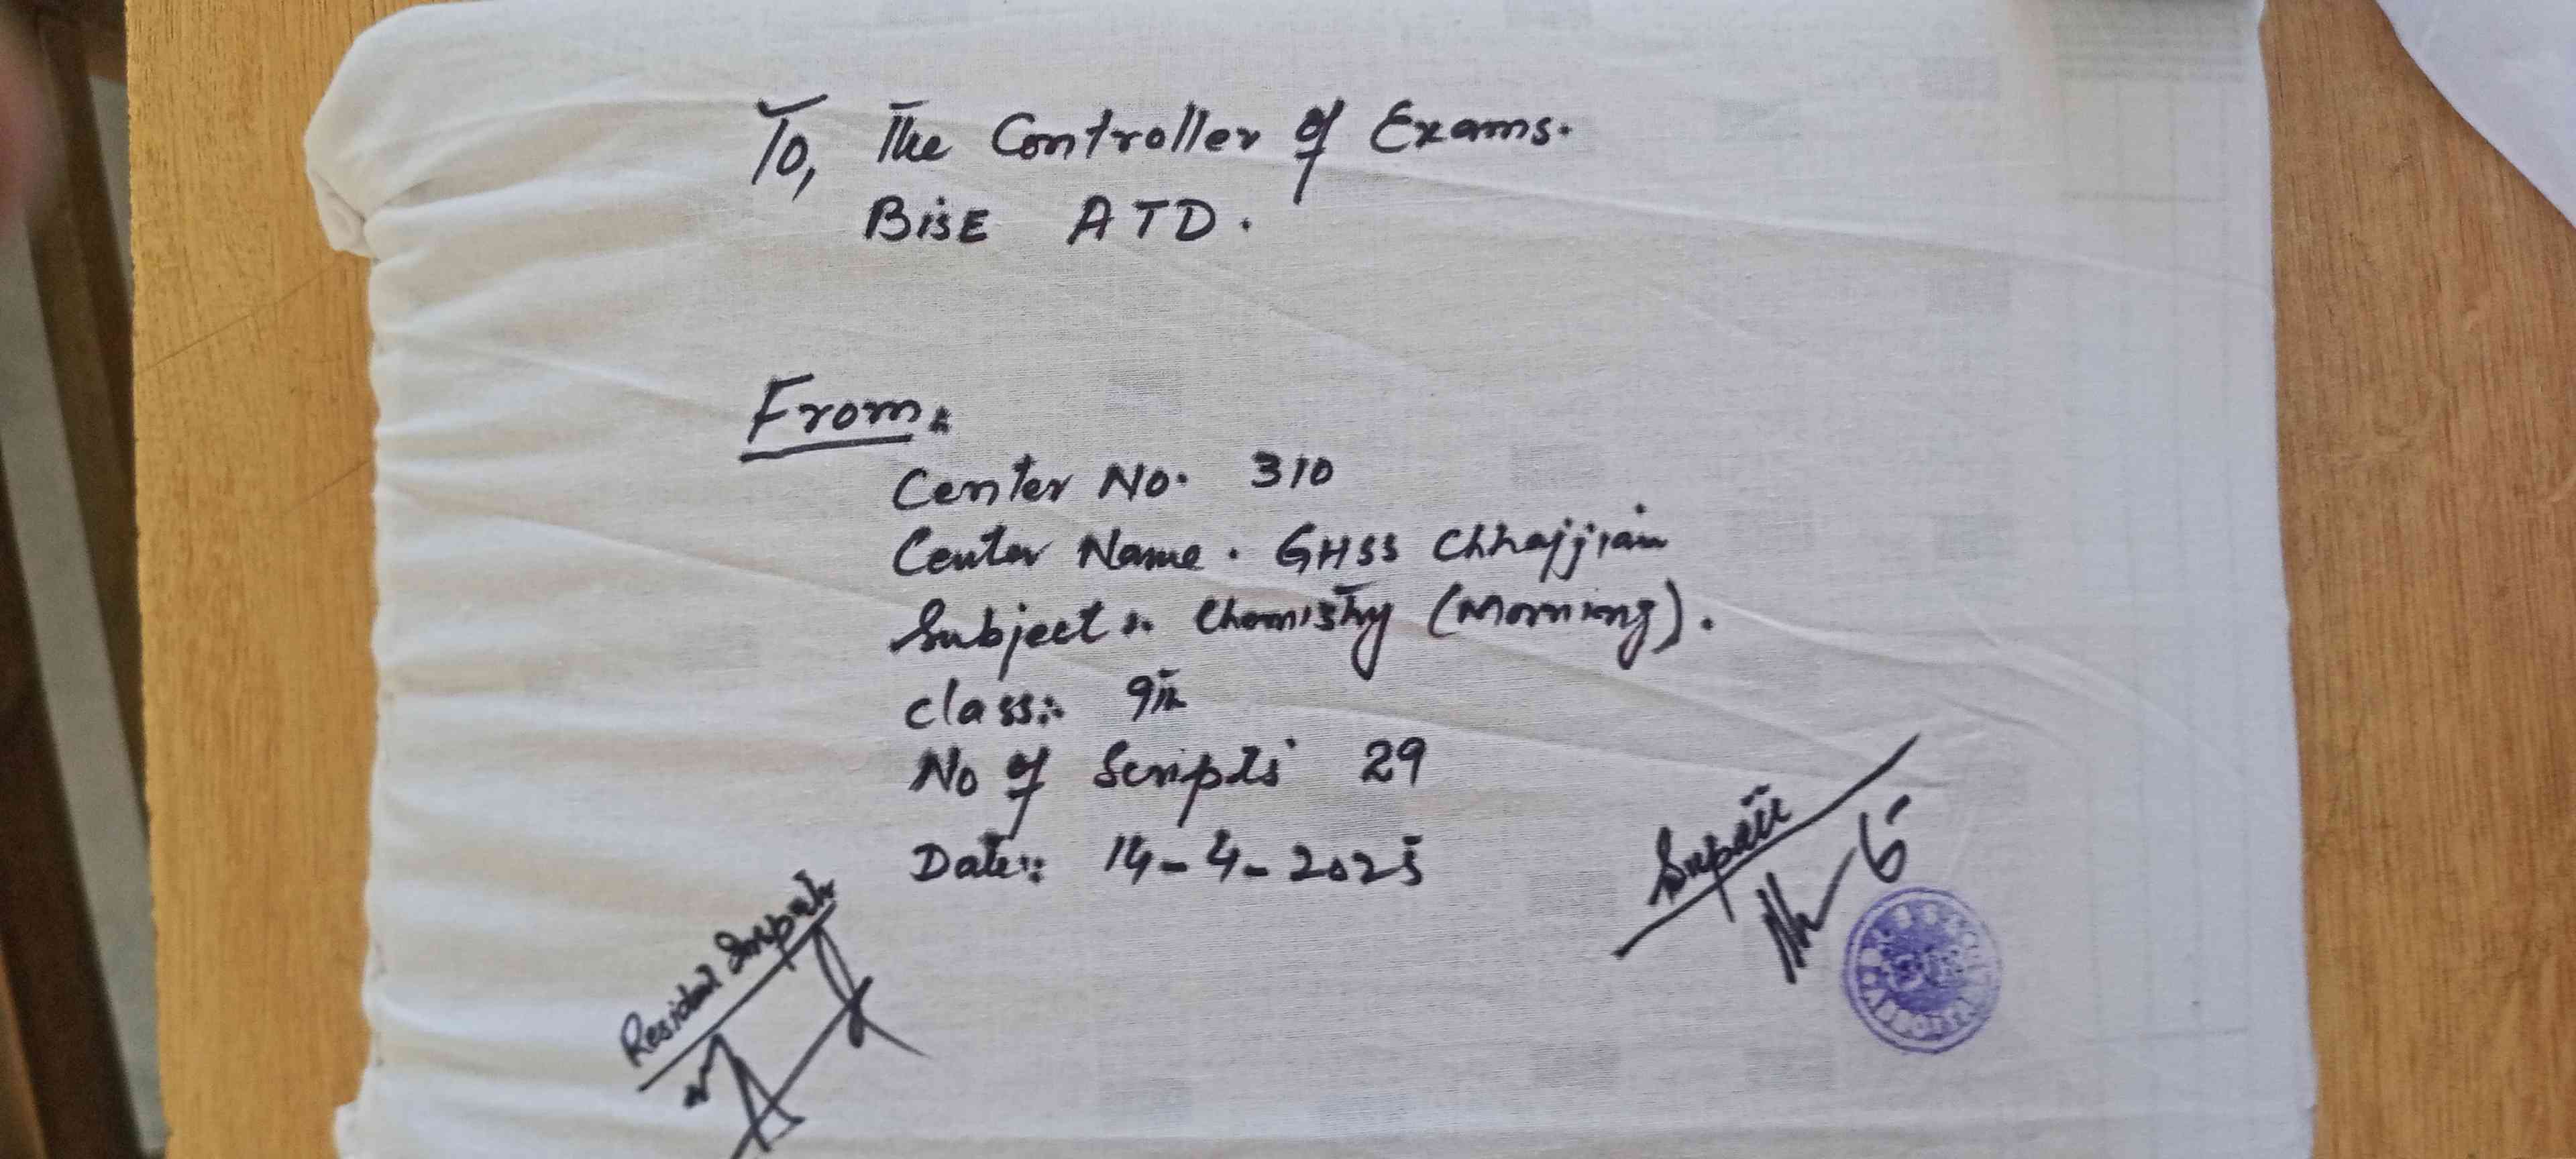 To, The Controller of Exams.
BISE ATD.
From:
Center No. 310
Center Name. GHSS Chhajjian
Subject:. Chemistry (Morning).
Class:. 9th
No of Scripts 29
Date:. 14-4-2025
Supdtt
Resident Inspector